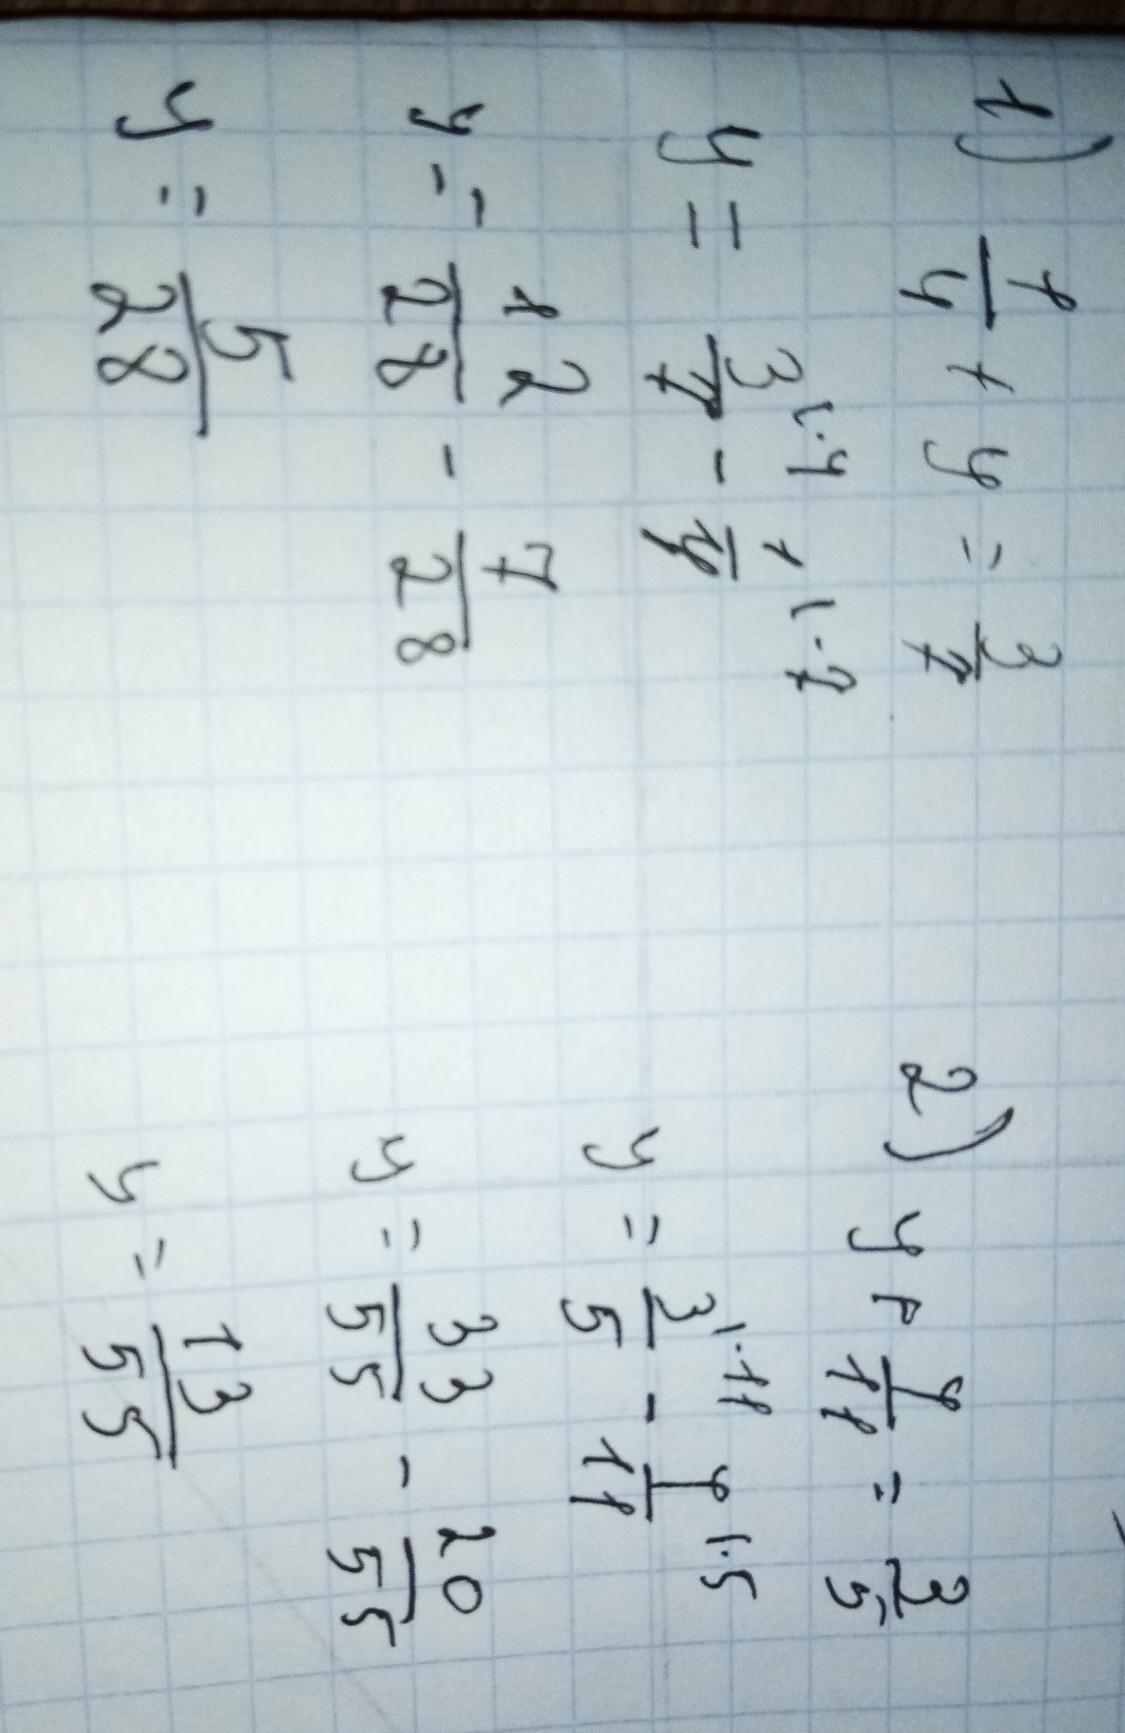 1) 1/4 + y = 3/7
y = 3/7 |·4 - 1/4 |·7
y = 12/28 - 7/28
y = 5/28
2) y + 4/11 = 3/5
y = 3/5 |·11 - 4/11 |·5
y = 33/55 - 20/55
y = 13/55